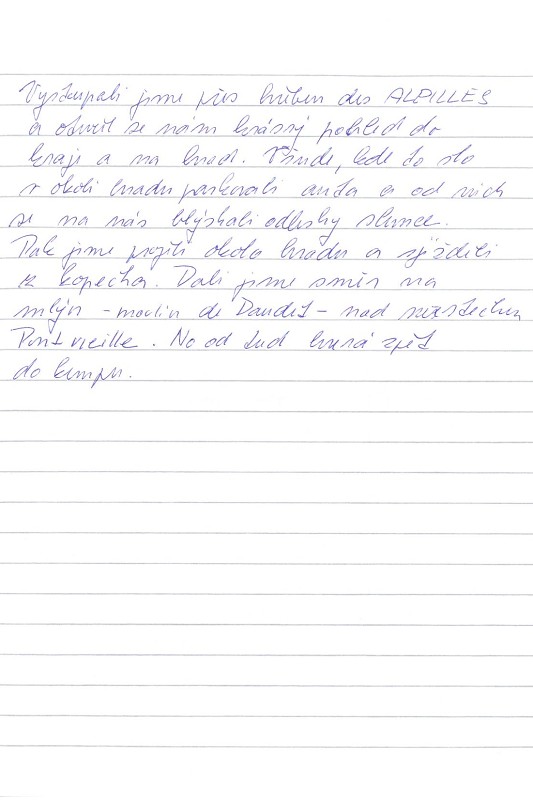 Vystupali jsme přes hřeben des ALPILLES
a otevřel se nám krásný pohled do
kraje a na hrad. Všude, kde to šlo
v okolí hradu parkovali auta a od nich
se na nás blýskali odlesky slunce.
Pak jsme projeli okolo hradu a sjížděli
z kopečka. Dali jsme směr na
mlýn - moulin de Daudet - nad městečkem
Pont vieille. No od tud hurá zpět
do kempu.